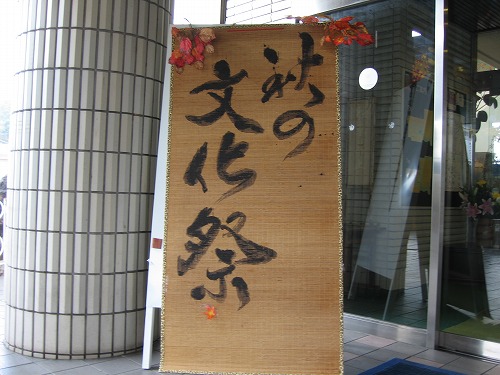 秋の
文化祭